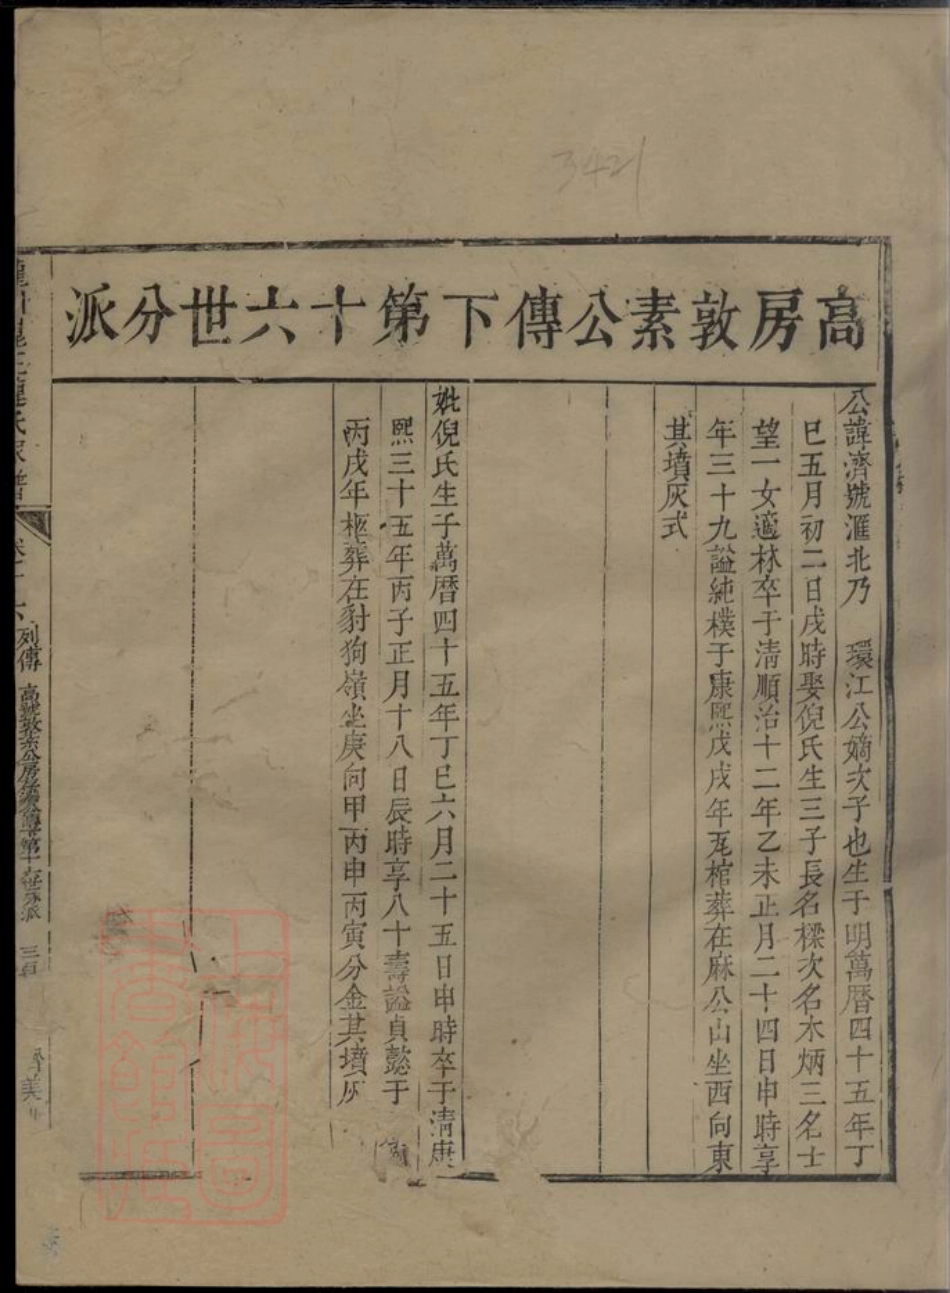 3421
高房敦素公傳下第十六世分派
公諱濟號滙北乃　環江公嫡次子也生于明萬曆四十五年丁
巳五月初二日戌時娶倪氏生三子長名樑次名木炳三名士
望一女適林卒于清順治十二年乙未正月二十四日申時享
年三十九謚純樸于康熙戊戌年瓦棺葬在麻公山坐西向東
其墳灰式
妣倪氏生于萬曆四十五年丁巳六月二十五日申時卒于清康
熙三十五年丙子正月十八日辰時享八十壽謚貞懿于
丙戌年柩葬在豺狗嶺坐庚向甲丙申丙寅分金其墳灰
氏家譜
列傳